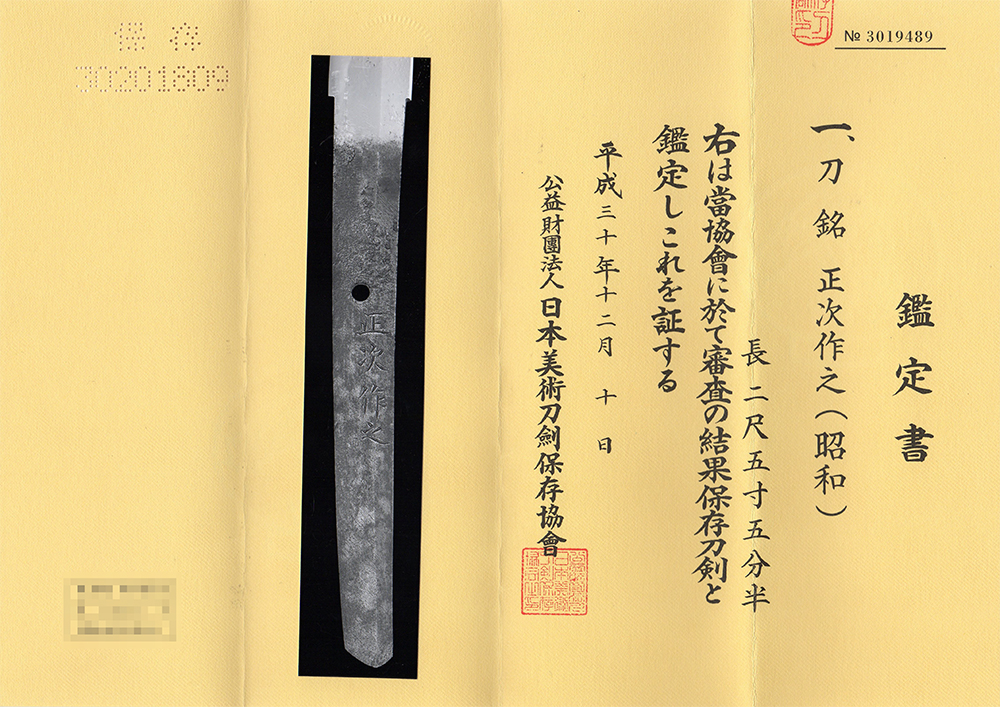 № 3019489
鑑定書
一、刀 銘 正次作之(昭和)
長二尺五寸五分半
右は當協會に於て審査の結果保存刀剣と
鑑定しこれを証する
平成三十年十二月 十 日
公益財團法人日本美術刀劍保存協會
正次作之
保存
30201809